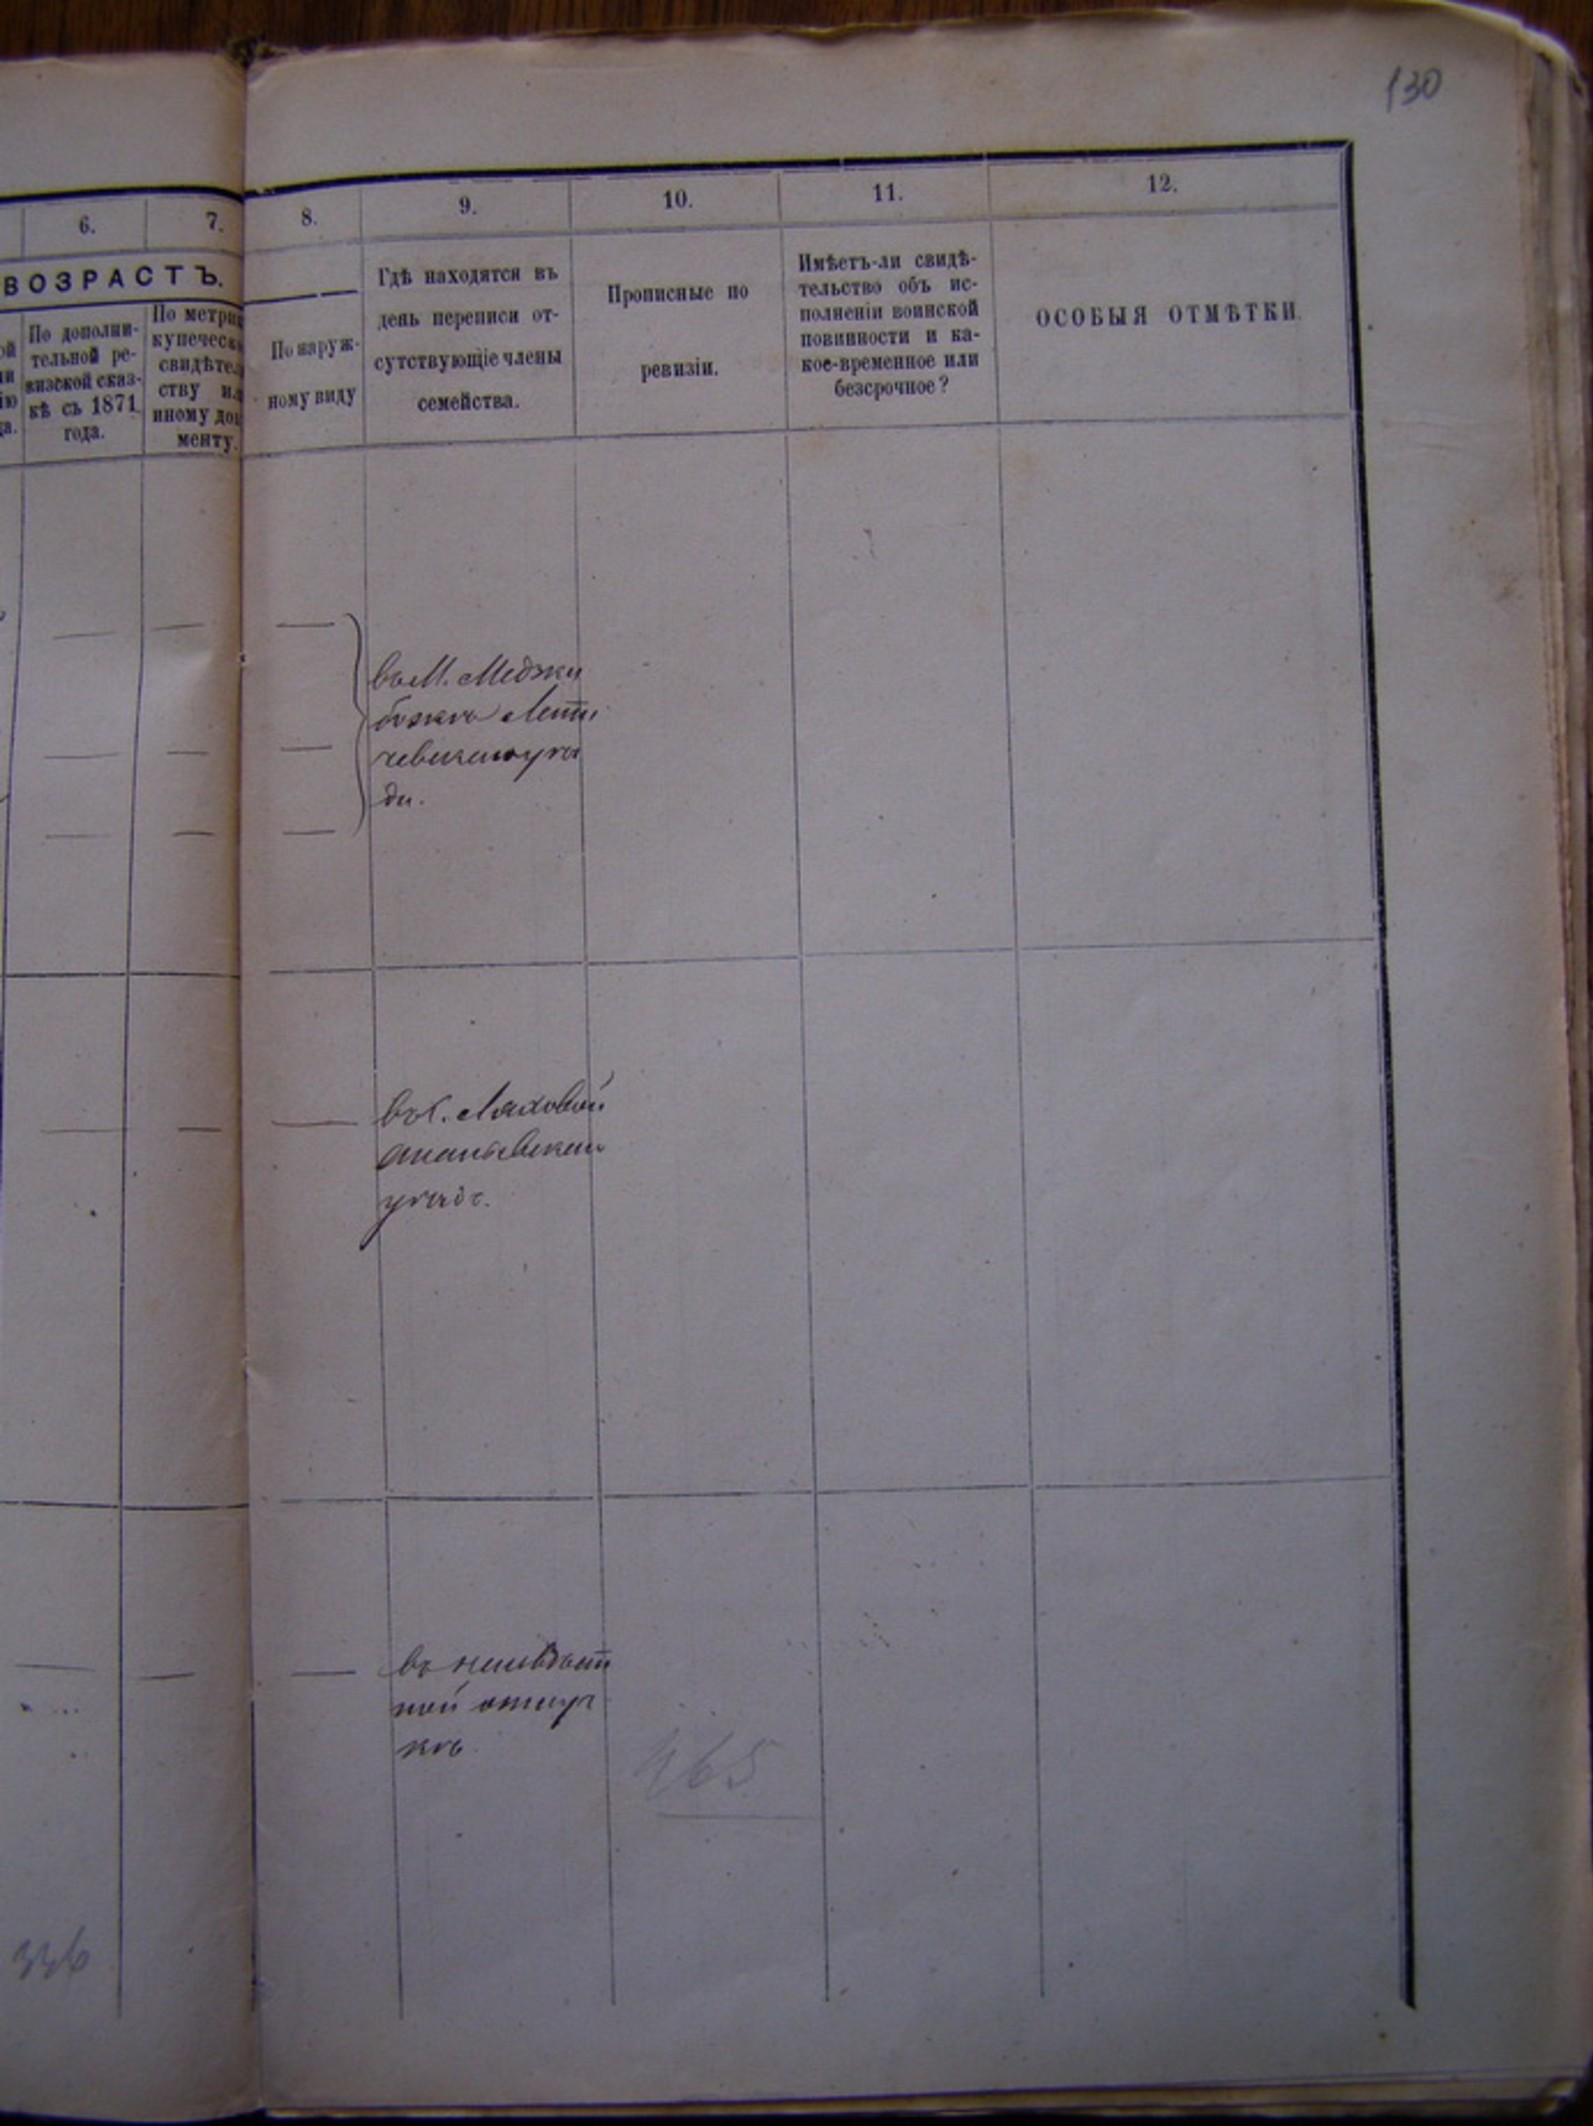 130
6. 7. 8. 9. 10. 11. 12.
ВОЗРАСТЪ.
По дополни-
тельной ре-
визской сказ-
кѣ съ 1871
года.
По метрик
купеческ
свидѣтел
ству ил
иному док
менту.
По наруж-
ному виду
Гдѣ находятся въ
день переписи от-
сутствующіе члены
семейства.
Прописные по
ревизіи.
Имѣетъ-ли свидѣ-
тельство объ ис-
полненіи воинской
повинности и ка-
кое-временное или
безсрочное?
ОСОБЫЯ ОТМѢТКИ.
въ М. Меджи
божѣ Лети
чевскаго уѣз
да.
въ С. Ляховой
Ананьевскаго
уѣзда.
въ неизвѣст
ной отлуч
кѣ
465
336